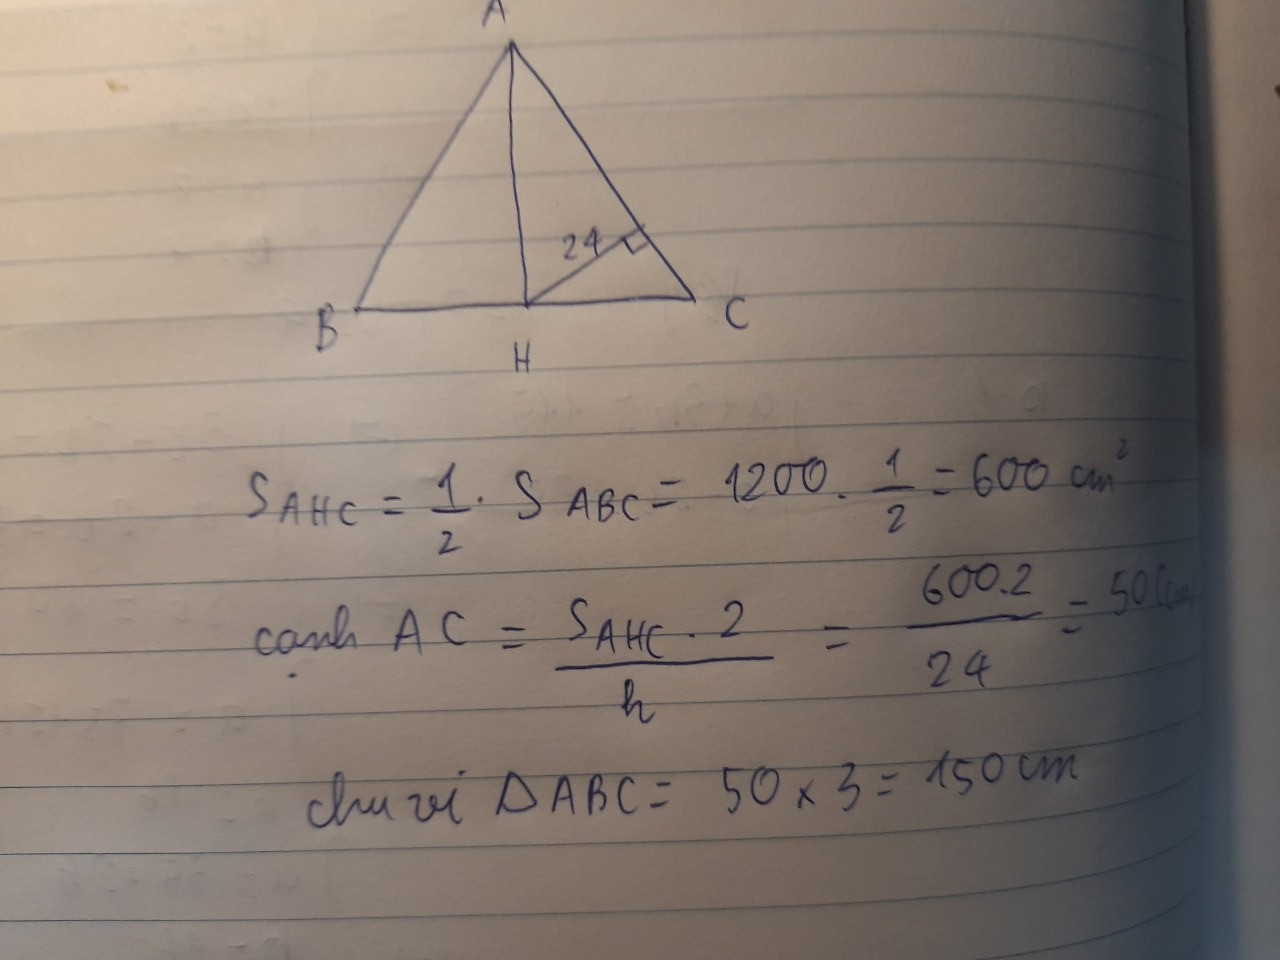 A
24
B
C
H
S AHC = 1/2 . S ABC = 1200 . 1/2 = 600 cm²
cạnh AC = S AHC . 2 / h = 600.2 / 24 = 50 (cm
chu vi ΔABC = 50 x 3 = 150 cm